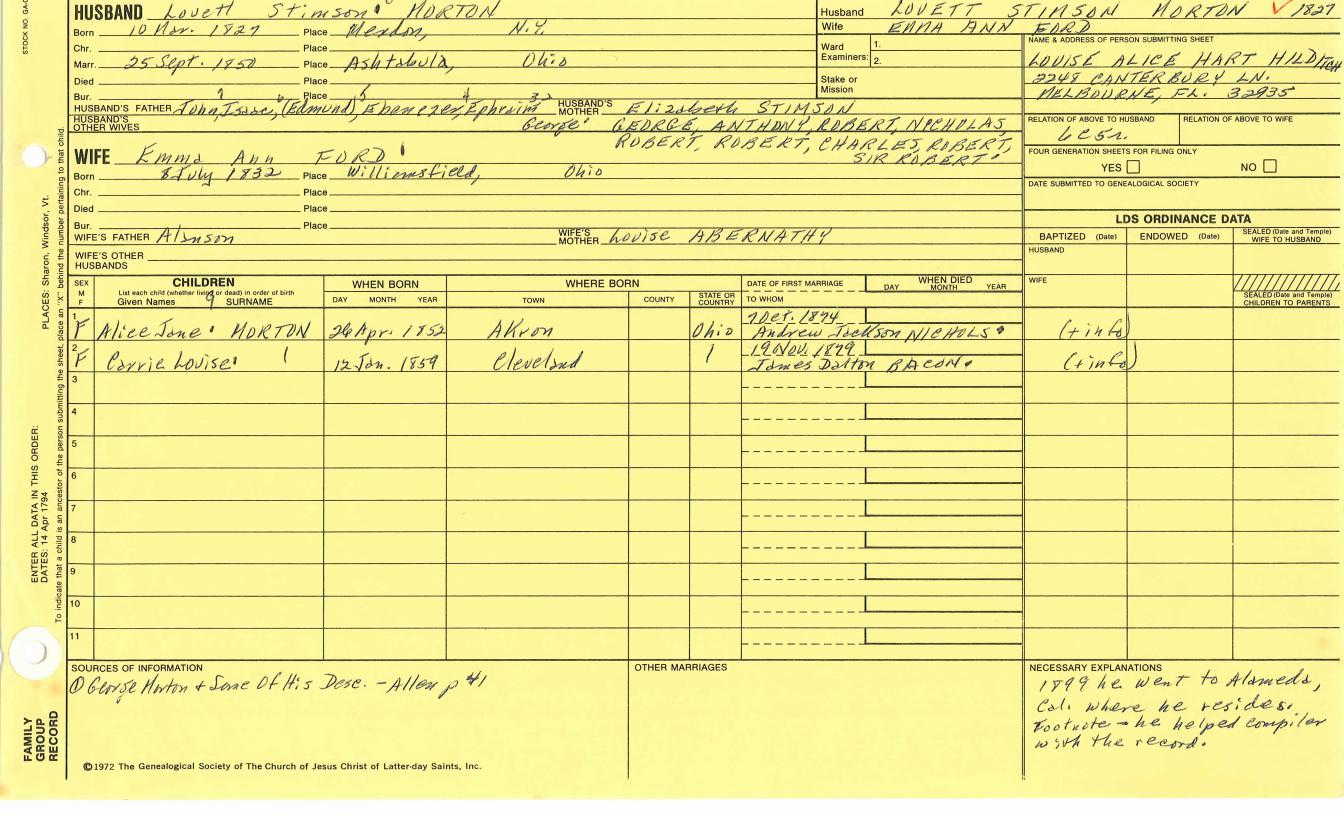 STOCK NO. GA-C
HUSBAND Lovett Stimson MORTON
Born 10 Mar. 1827 Place Mendon, N.Y.
Chr. Place
Marr. 25 Sept. 1850 Place Ashtabula, Ohio
Died Place
Bur. Place
HUSBAND'S FATHER John, Isaac, (Edmund), Ebenezer, Ephraim
George
HUSBAND'S MOTHER Elizabeth STIMSON
GEORGE, ANTHONY, ROBERT, NICHOLAS,
ROBERT, ROBERT, CHARLES, ROBERT,
SIR ROBERT
HUSBAND'S OTHER WIVES
WIFE Emma Ann FORD
Born 8 July 1832 Place Williamsfield, Ohio
Chr. Place
Died Place
Bur. Place
WIFE'S FATHER Alanson
WIFE'S MOTHER Louise ABERNATHY
WIFE'S OTHER HUSBANDS
Husband LOVETT STIMSON MORTON 1827
Wife EMMA ANN FORD
Ward Examiners: 1.
2.
Stake or Mission
NAME & ADDRESS OF PERSON SUBMITTING SHEET
LOUISE ALICE HART HILDITCH
2248 CANTERBURY LN.
MELBOURNE, FL. 32935
RELATION OF ABOVE TO HUSBAND RELATION OF ABOVE TO WIFE
FOUR GENERATION SHEETS FOR FILING ONLY
YES NO
DATE SUBMITTED TO GENEALOGICAL SOCIETY
LDS ORDINANCE DATA
BAPTIZED (Date) ENDOWED (Date) SEALED (Date and Temple) WIFE TO HUSBAND
HUSBAND
WIFE
SEALED (Date and Temple) CHILDREN TO PARENTS
SEX M F
CHILDREN
List each child (whether living or dead) in order of birth
Given Names SURNAME
WHEN BORN
DAY MONTH YEAR
WHERE BORN
TOWN COUNTY STATE OR COUNTRY
DATE OF FIRST MARRIAGE
TO WHOM
WHEN DIED
DAY MONTH YEAR
1 F Alice Jane MORTON 26 Apr. 1852 Akron Ohio 7 Oct. 1874 (+ info)
Andrew Jackson NICHOLS
2 F Carrie Louise 12 Jan. 1859 Cleveland 19 Nov. 1879 (+ info)
James Dalton BACON
3
4
5
6
7
8
9
10
11
SOURCES OF INFORMATION
① George Morton + Some Of His Desc. - Allen p 41
OTHER MARRIAGES
NECESSARY EXPLANATIONS
1899 he went to Alameda,
Cal. where he resides.
Footnote - he helped compiler
with the record.
©1972 The Genealogical Society of The Church of Jesus Christ of Latter-day Saints, Inc.
FAMILY
GROUP
RECORD
ENTER ALL DATA IN THIS ORDER:
DATES: 14 Apr 1794
PLACES: Sharon, Windsor, Vt.
To indicate that a child is an ancestor of the person submitting the sheet, place an "X" behind the number pertaining to that child.